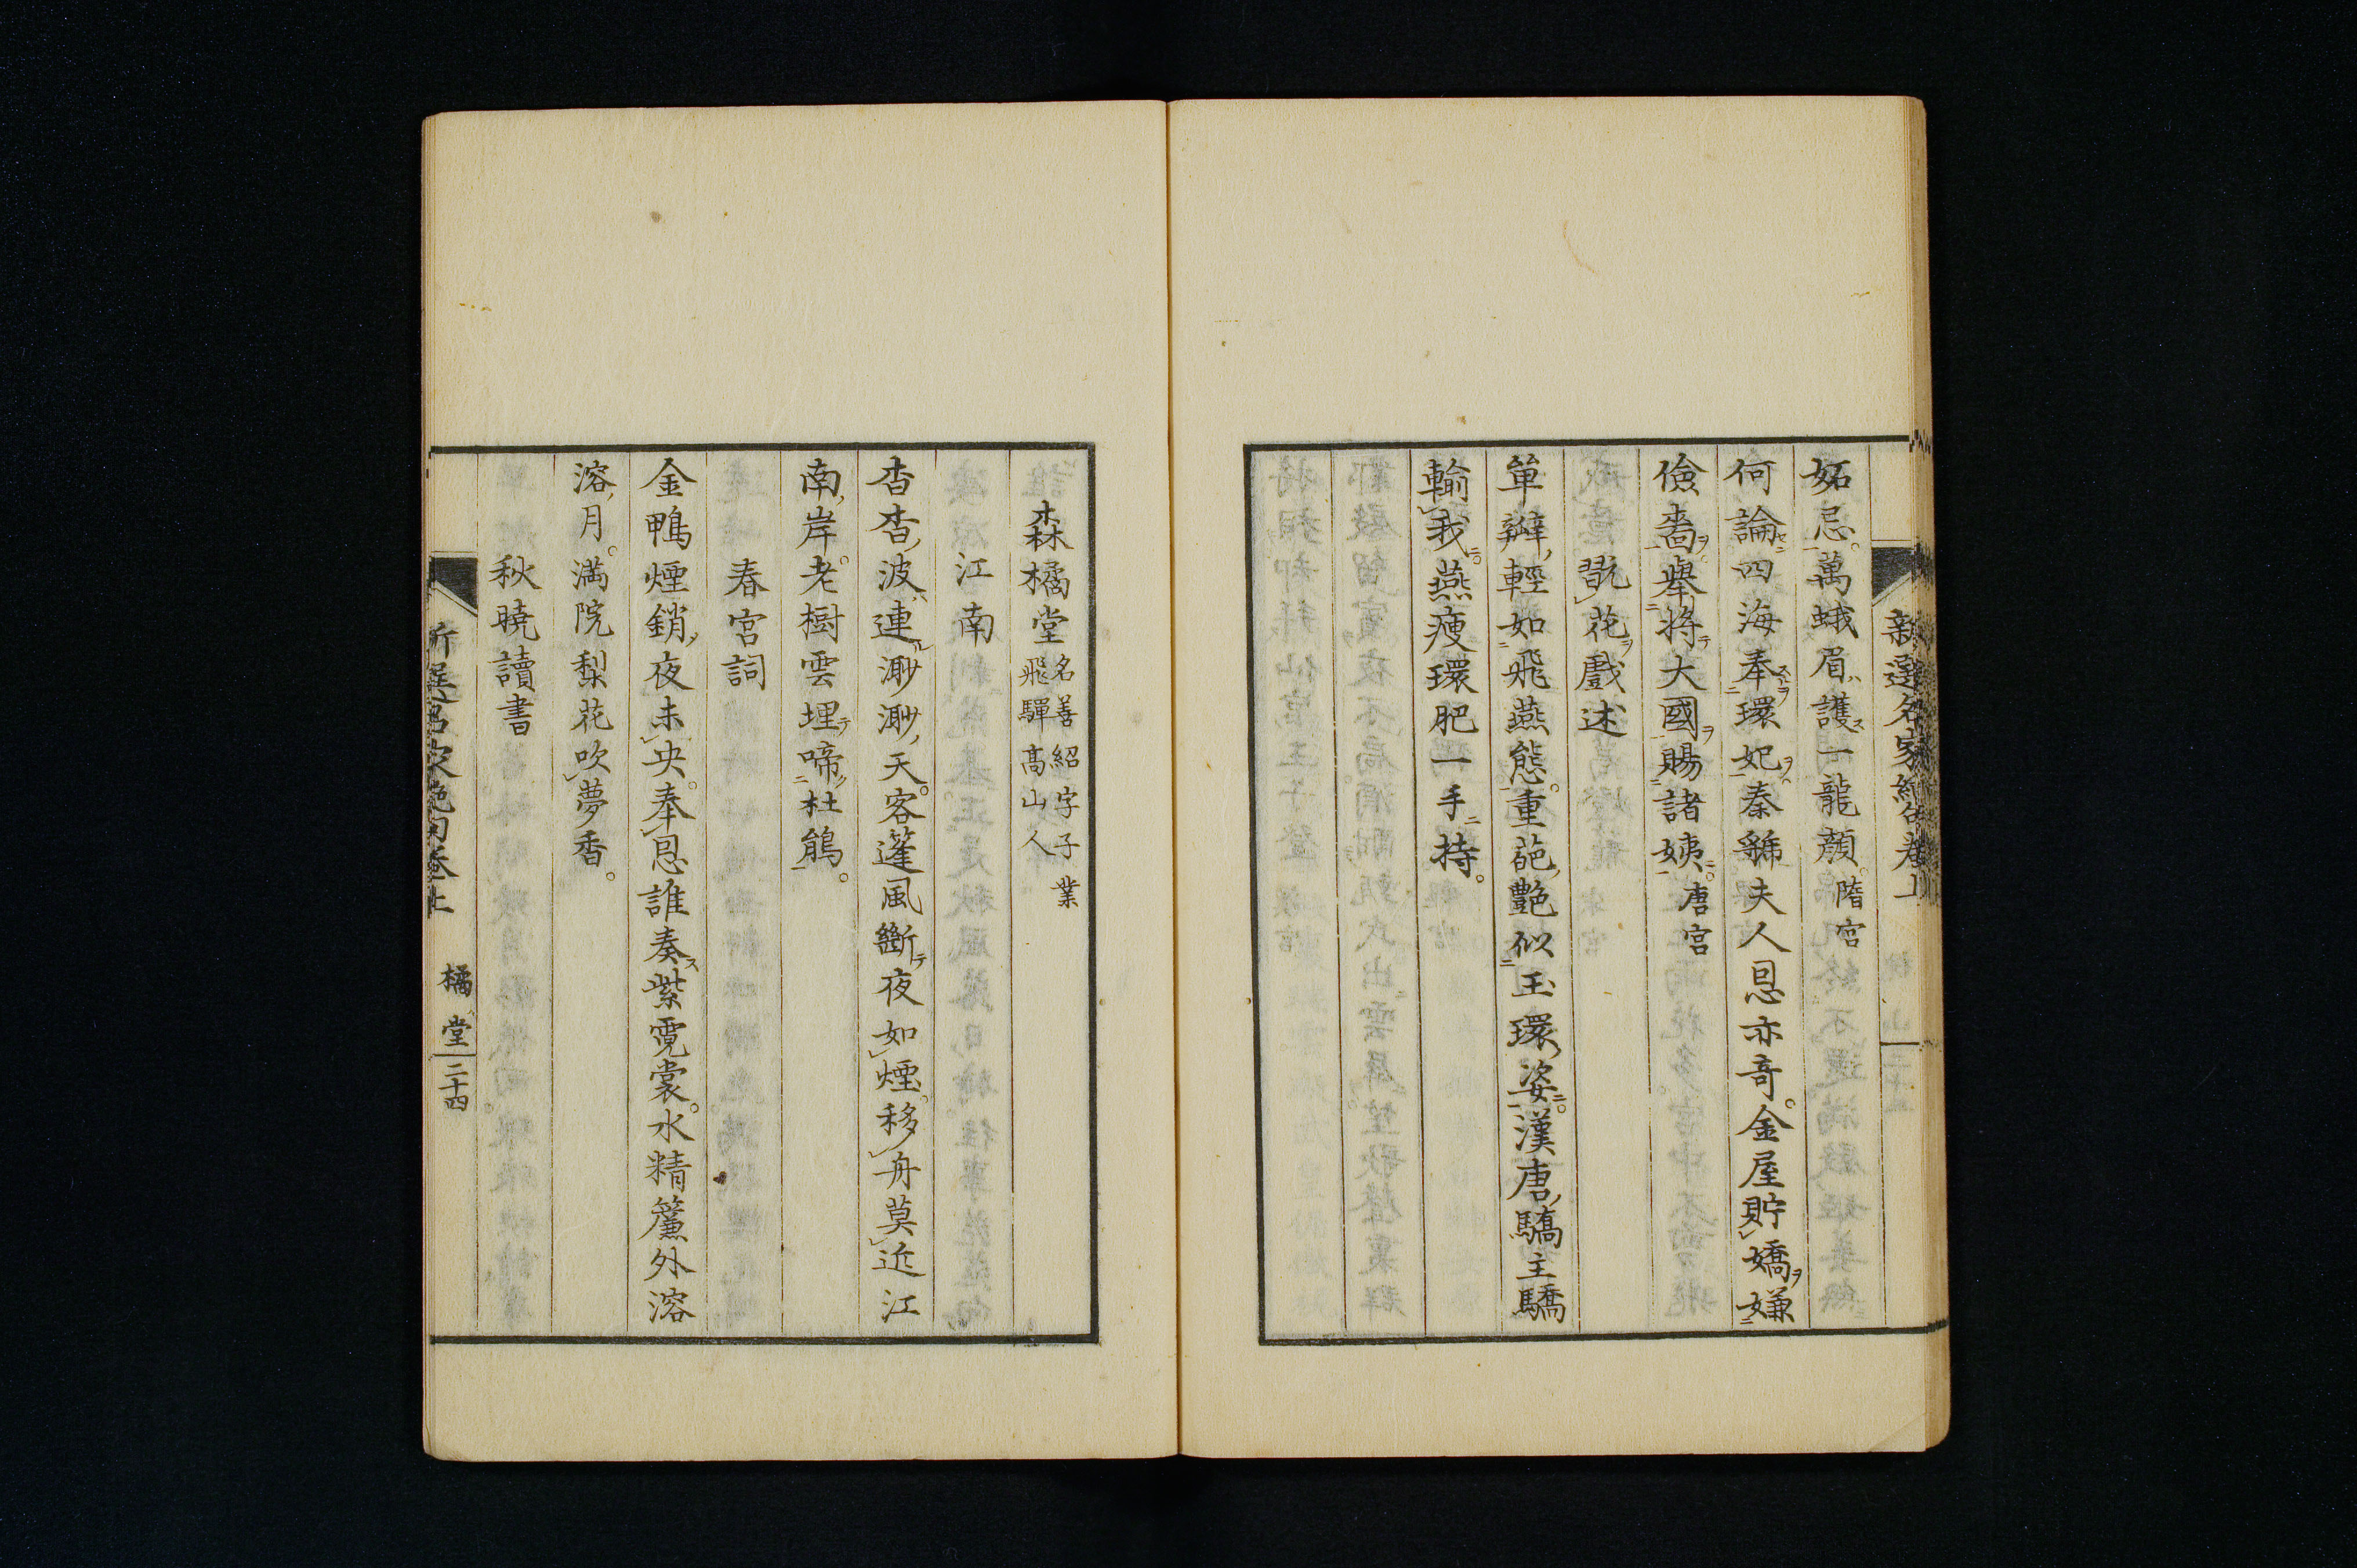 新選名家絶句巻上
妬忌萬蛾眉護一龍顔 隋宮
何論四海奉環妃秦虢夫人恩亦奇金屋貯嬌嫌
儉嗇擧將大國賜諸姨 唐宮
翫花戲述
單瓣輕如飛燕態重葩艷似玉環姿漢唐驕主驕
輸我燕瘦環肥一手持
森橘堂 名善紹字子業
飛驒高山人
江南
杳杳波連渺渺天客篷風斷夜如煙移舟莫近江
南岸老樹雲埋啼杜鵑
春宮詞
金鴨煙銷夜未央奉恩誰奏紫霓裳水精簾外溶
溶月滿院梨花吹夢香
秋曉讀書
新選名家絶句巻上 橘堂 二十四